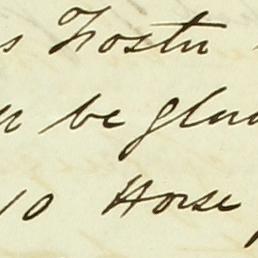 s Foster
be glad
10 Horse